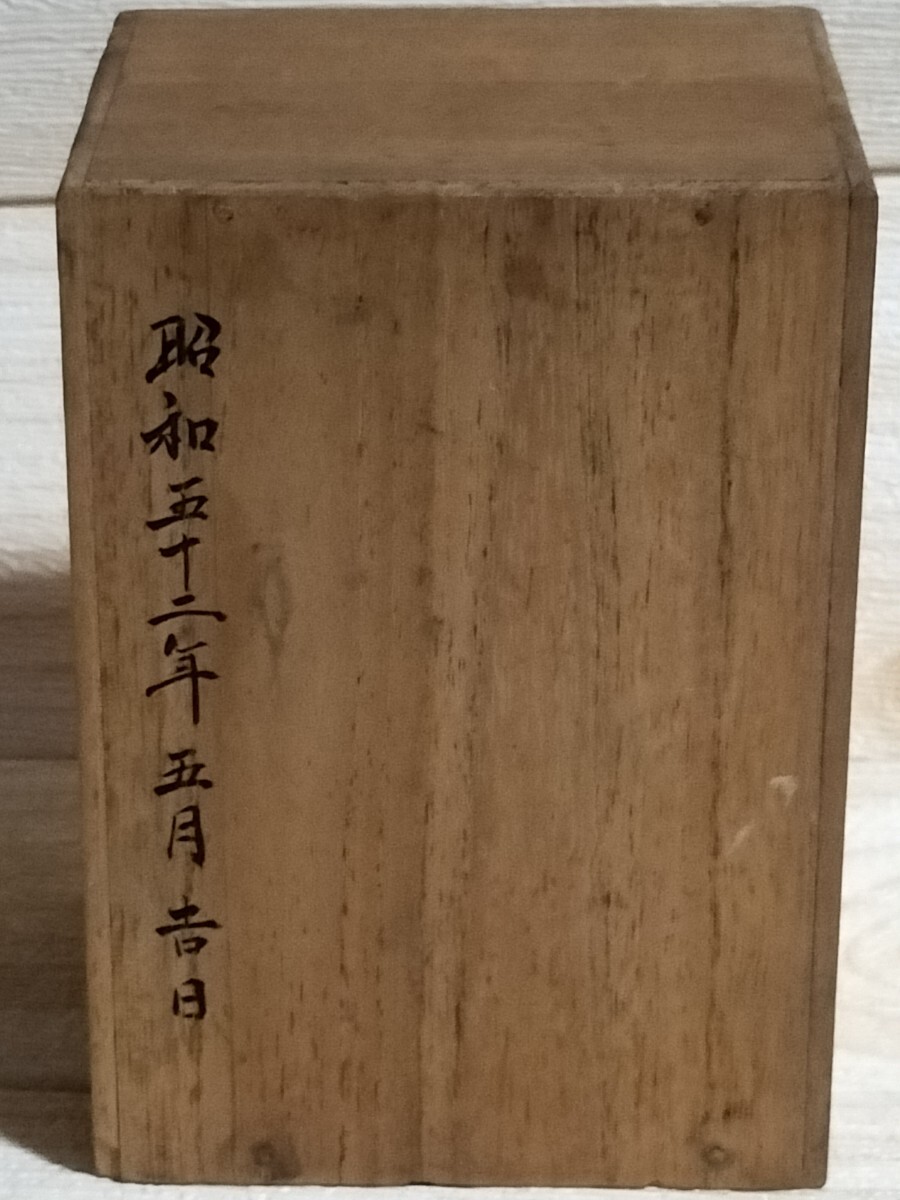 昭和五十二年五月吉日